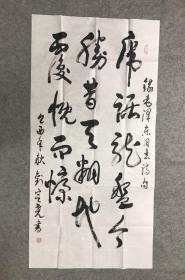 錄毛澤東同志詩句
虎踞龙盘今
勝昔天翻地
覆慨而慷
乙酉年秋